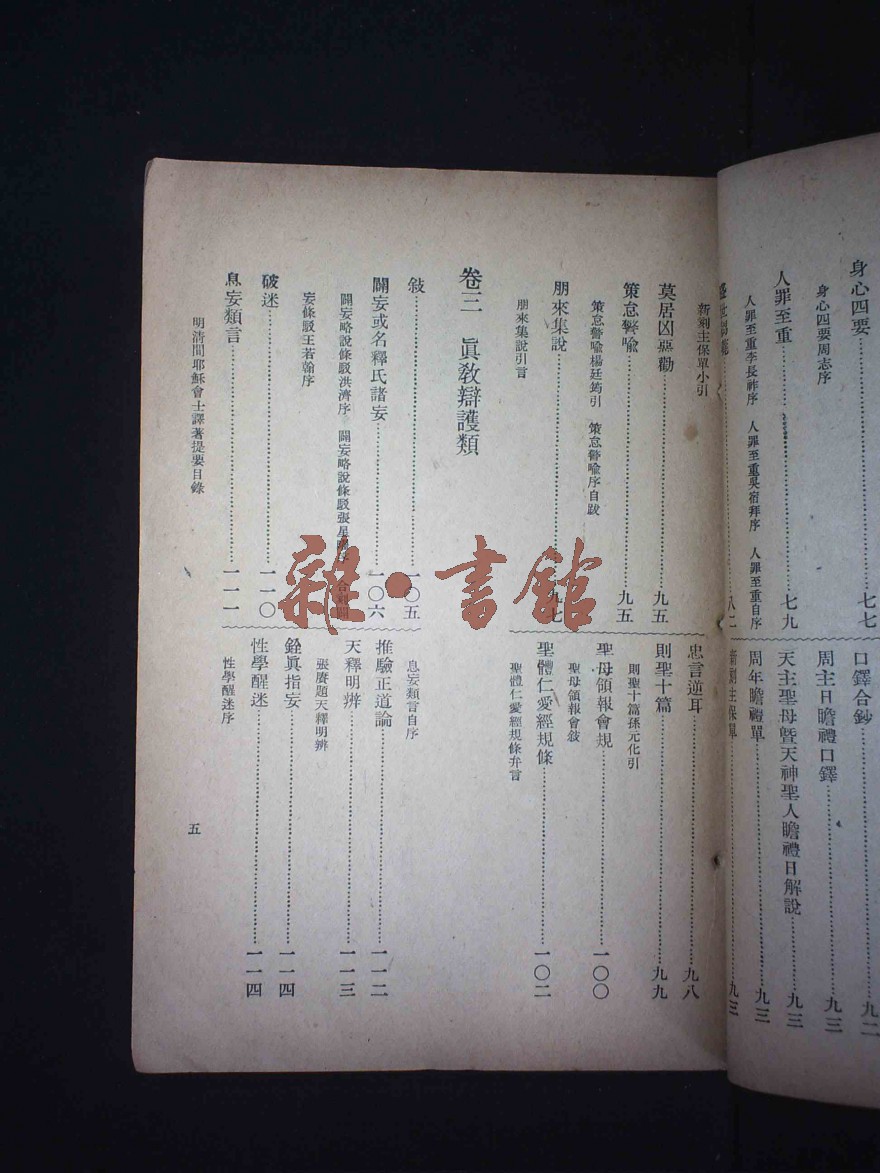 身心四要……七七
身心四要周志序
人罪至重……七九
人罪至重李長祚序　人罪至重吳宿拜序　人罪至重自序
八二
口鐸合鈔……九二
周主日瞻禮口鐸……九三
天主聖母暨天神聖人瞻禮日解說……九三
周年瞻禮單……九三
新剜主保單……九三
新剜主保單小引
莫居凶惡勸……九五
策怠警喻……九五
策怠警喻楊廷筠引　策怠警喻序自跋
朋來集說……九七
朋來集說引言
忠言逆耳……九八
則聖十篇……九九
則聖十篇孫元化引
聖母領報會規……一〇〇
聖母領報會敍
聖體仁愛經規條……一〇二
聖體仁愛經規條弁言
卷三　眞教辯護類
敍……一〇五
闢妄或名釋氏諸妄……一〇六
闢妄略說條駁洪濟序　闢妄略說條駁張星曜序　合
妄條駁王若翰序
破迷……一一〇
息妄類言……一一一
息妄類言自序
推驗正道論……一一二
天釋明辨……一一三
張賡題天釋明辨
銓眞指妄……一一四
性學醒迷……一一四
性學醒迷序
明清間耶穌會士譯著提要目錄
五
雜·書館